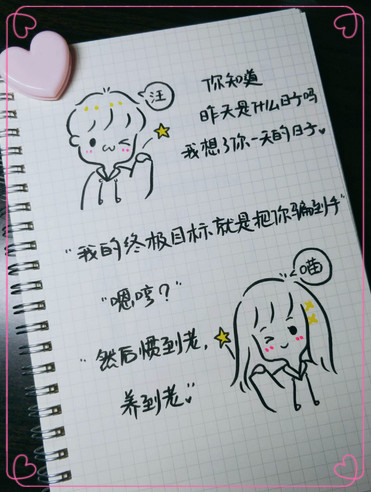 汪
你知道
昨天是什么日子吗
我想了你一天的日子
"我的终极目标就是把你骗到手"
"嗯哼?"
喵
"然后惯到老,
养到老"